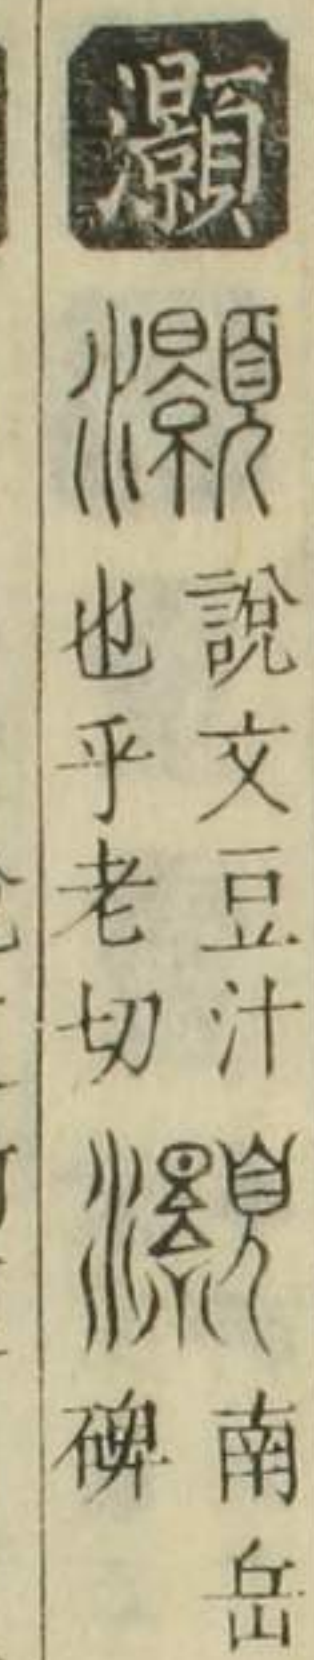 灝
灝
説文豆汁
也乎老切
灝
南岳
碑